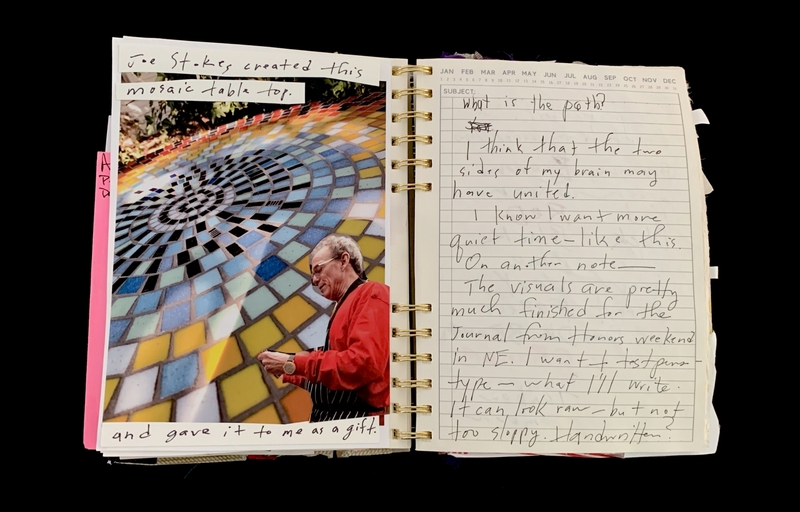 Joe Stokes created this
mosaic table top.
and gave it to me as a gift.
A
P
D
JAN FEB MAR APR MAY JUN JUL AUG SEP OCT NOV DEC
SUBJECT:
What is the path?
I think that the two
sides of my brain may
have united.
I know I want more
quiet time - like this.
On another note —
The visuals are pretty
much finished for the
Journal from Honors weekend
in NE. I want to test
type - what I'll write.
It can look raw - but not
too sloppy. Handwritten?